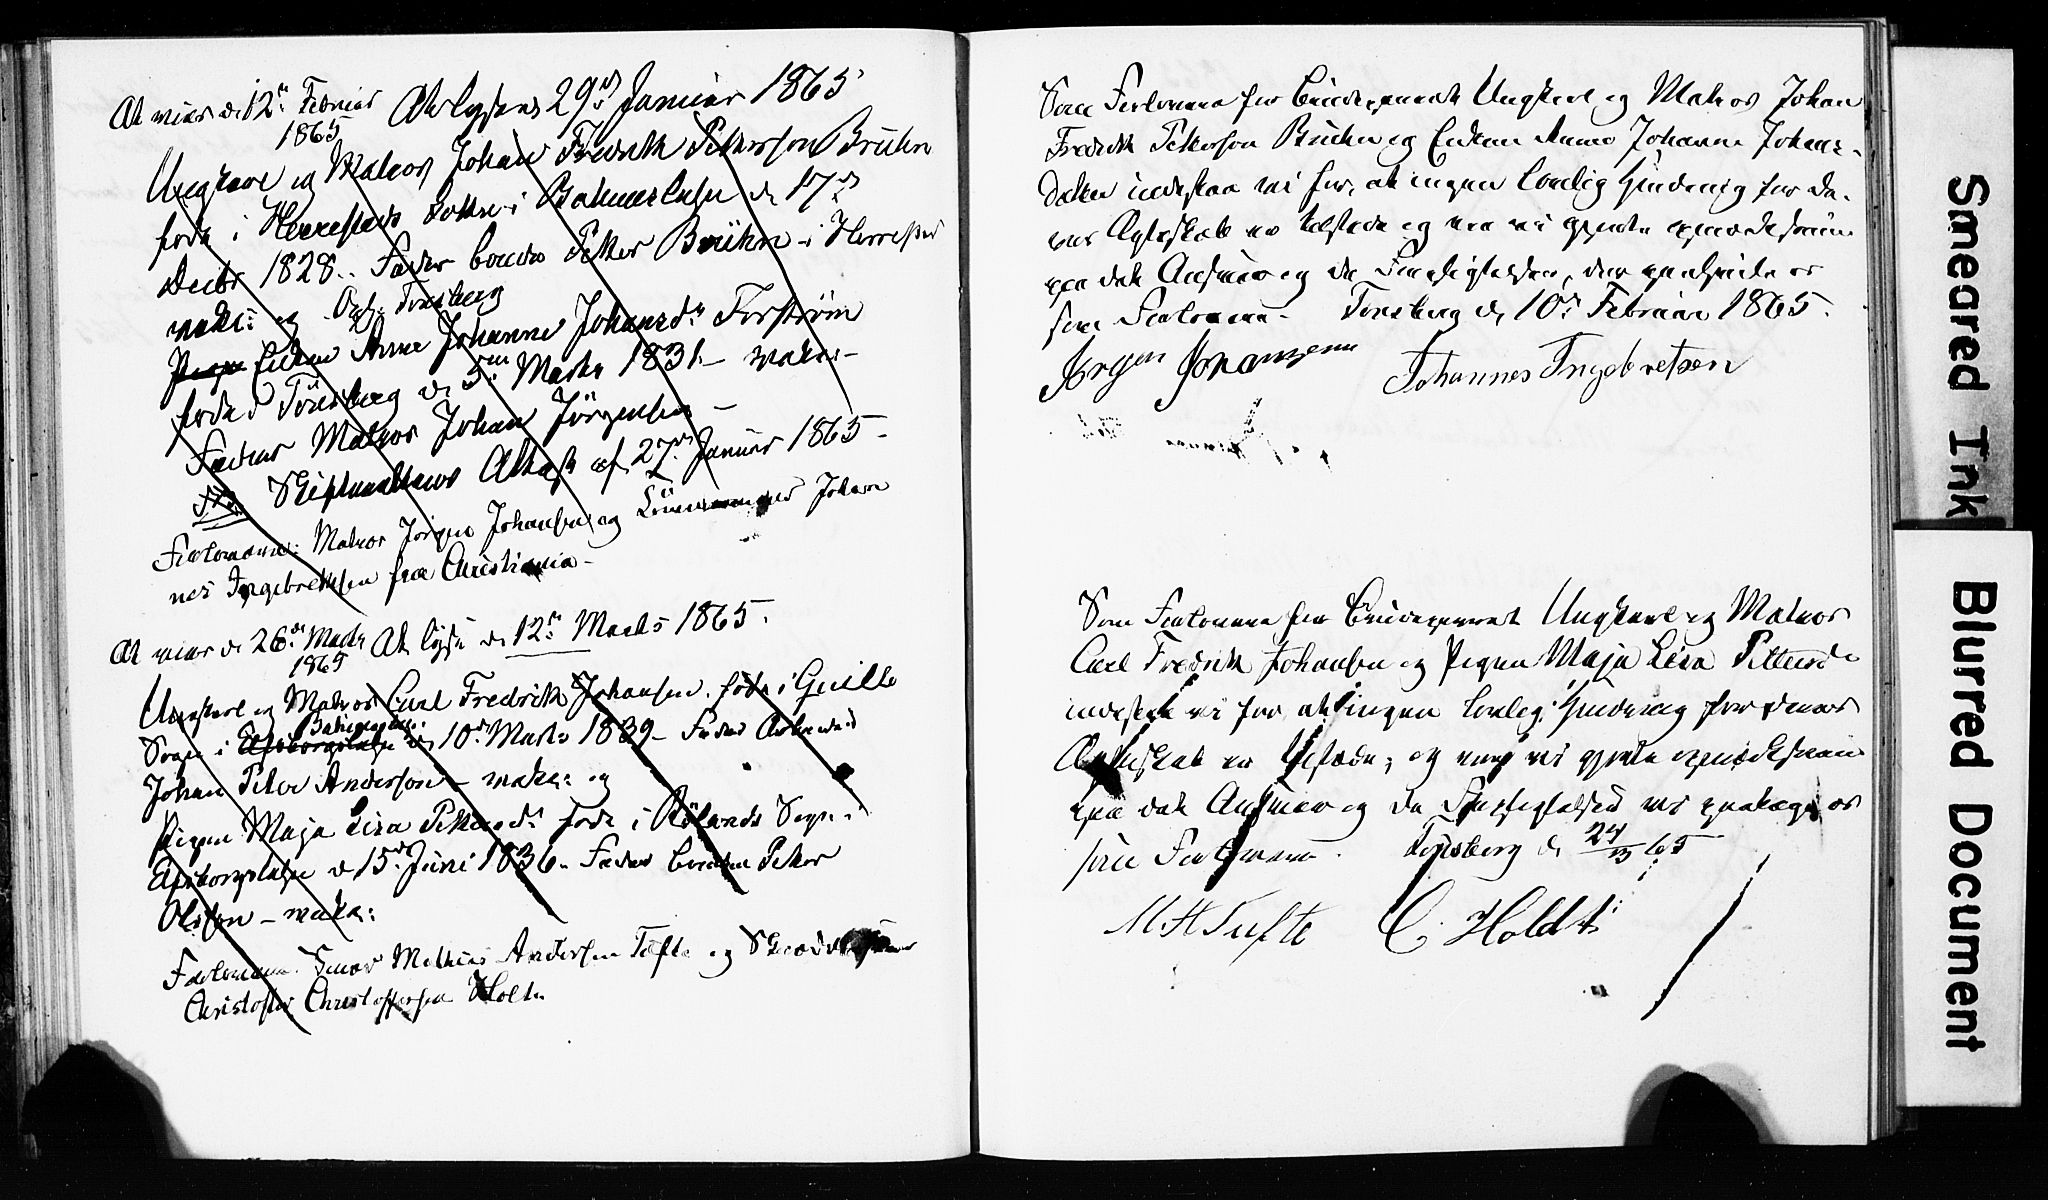 At vies d. 12te Februar 1865 At lyses d 29de Januar 1865
Ungkarl og Matros Johan Fredrik Petterson Brühn
föde i Herrestads Sokn i Bahuuslehn d 17de
Decbr 1828. Fader bonde Petter Brühn i Herrestad
vakc: og Oph. Tønsberg
Pigen Enken Anne Johanne Johansdr Forström
föde i Tönsberg d. 5te Marts 1831 - vakc: -
Faderen Matros Johan Jörgensen -
Skiftevæsens Attest af 27de Januar 1865 -
Forlovere: Matros Jörgen Johansen og Johan
nes Ingebretsen fra Christiania -
At vies d 26de Marts 1865 At lyse d 12te Marts 1865.
Ungkarl og Matros Carl Fredrik Johansen, föde i
Sogn i Elfsborgslehn d 10de Marts 1839 - Fader Arbeider
Johan Peter Anderson - vakc: og
Pigen Maja Lisa Pettersdr föde i Rölands Sogn i
Elfsborgslehn d 15de Juni 1836 - Fader bonden Petter
Olsson - vakc:
Forlovere: Mathias Andersen Tufte og
Christoffer Christoffersen Holt
Som Forlovere for Brudeparret Ungkarl og Matros Johan
Fredrik Petterson Brühn og Enken Anne Johanne Johans-
datter indestaa vi for, at ingen lovlig Hindring for de-
res Ægteskab er tilstede og ere vi gjorte opmærksomme
paa det Ansvar og de Forpligtelser, der paahvile os
som Forlovere. Tønsberg d. 10de Februar 1865.
Jörgen Johansenn Johannes Ingebretsen
Som Forlovere for Brudeparret Ungkarl og Matros
Carl Fredrik Johansen og Pigen Maja Lisa Pettersdr
indestaa vi for at ingen lovlig Hindring for deres
Ægteskab er tilstede; og ere vi gjorte opmærksomme
paa det Ansvar og de Forpligtelser vi paatage os
som Forlovere. Tønsberg d 24/3 65
M A Tufte C. Holdt
Smeared Ink
Blurred Document